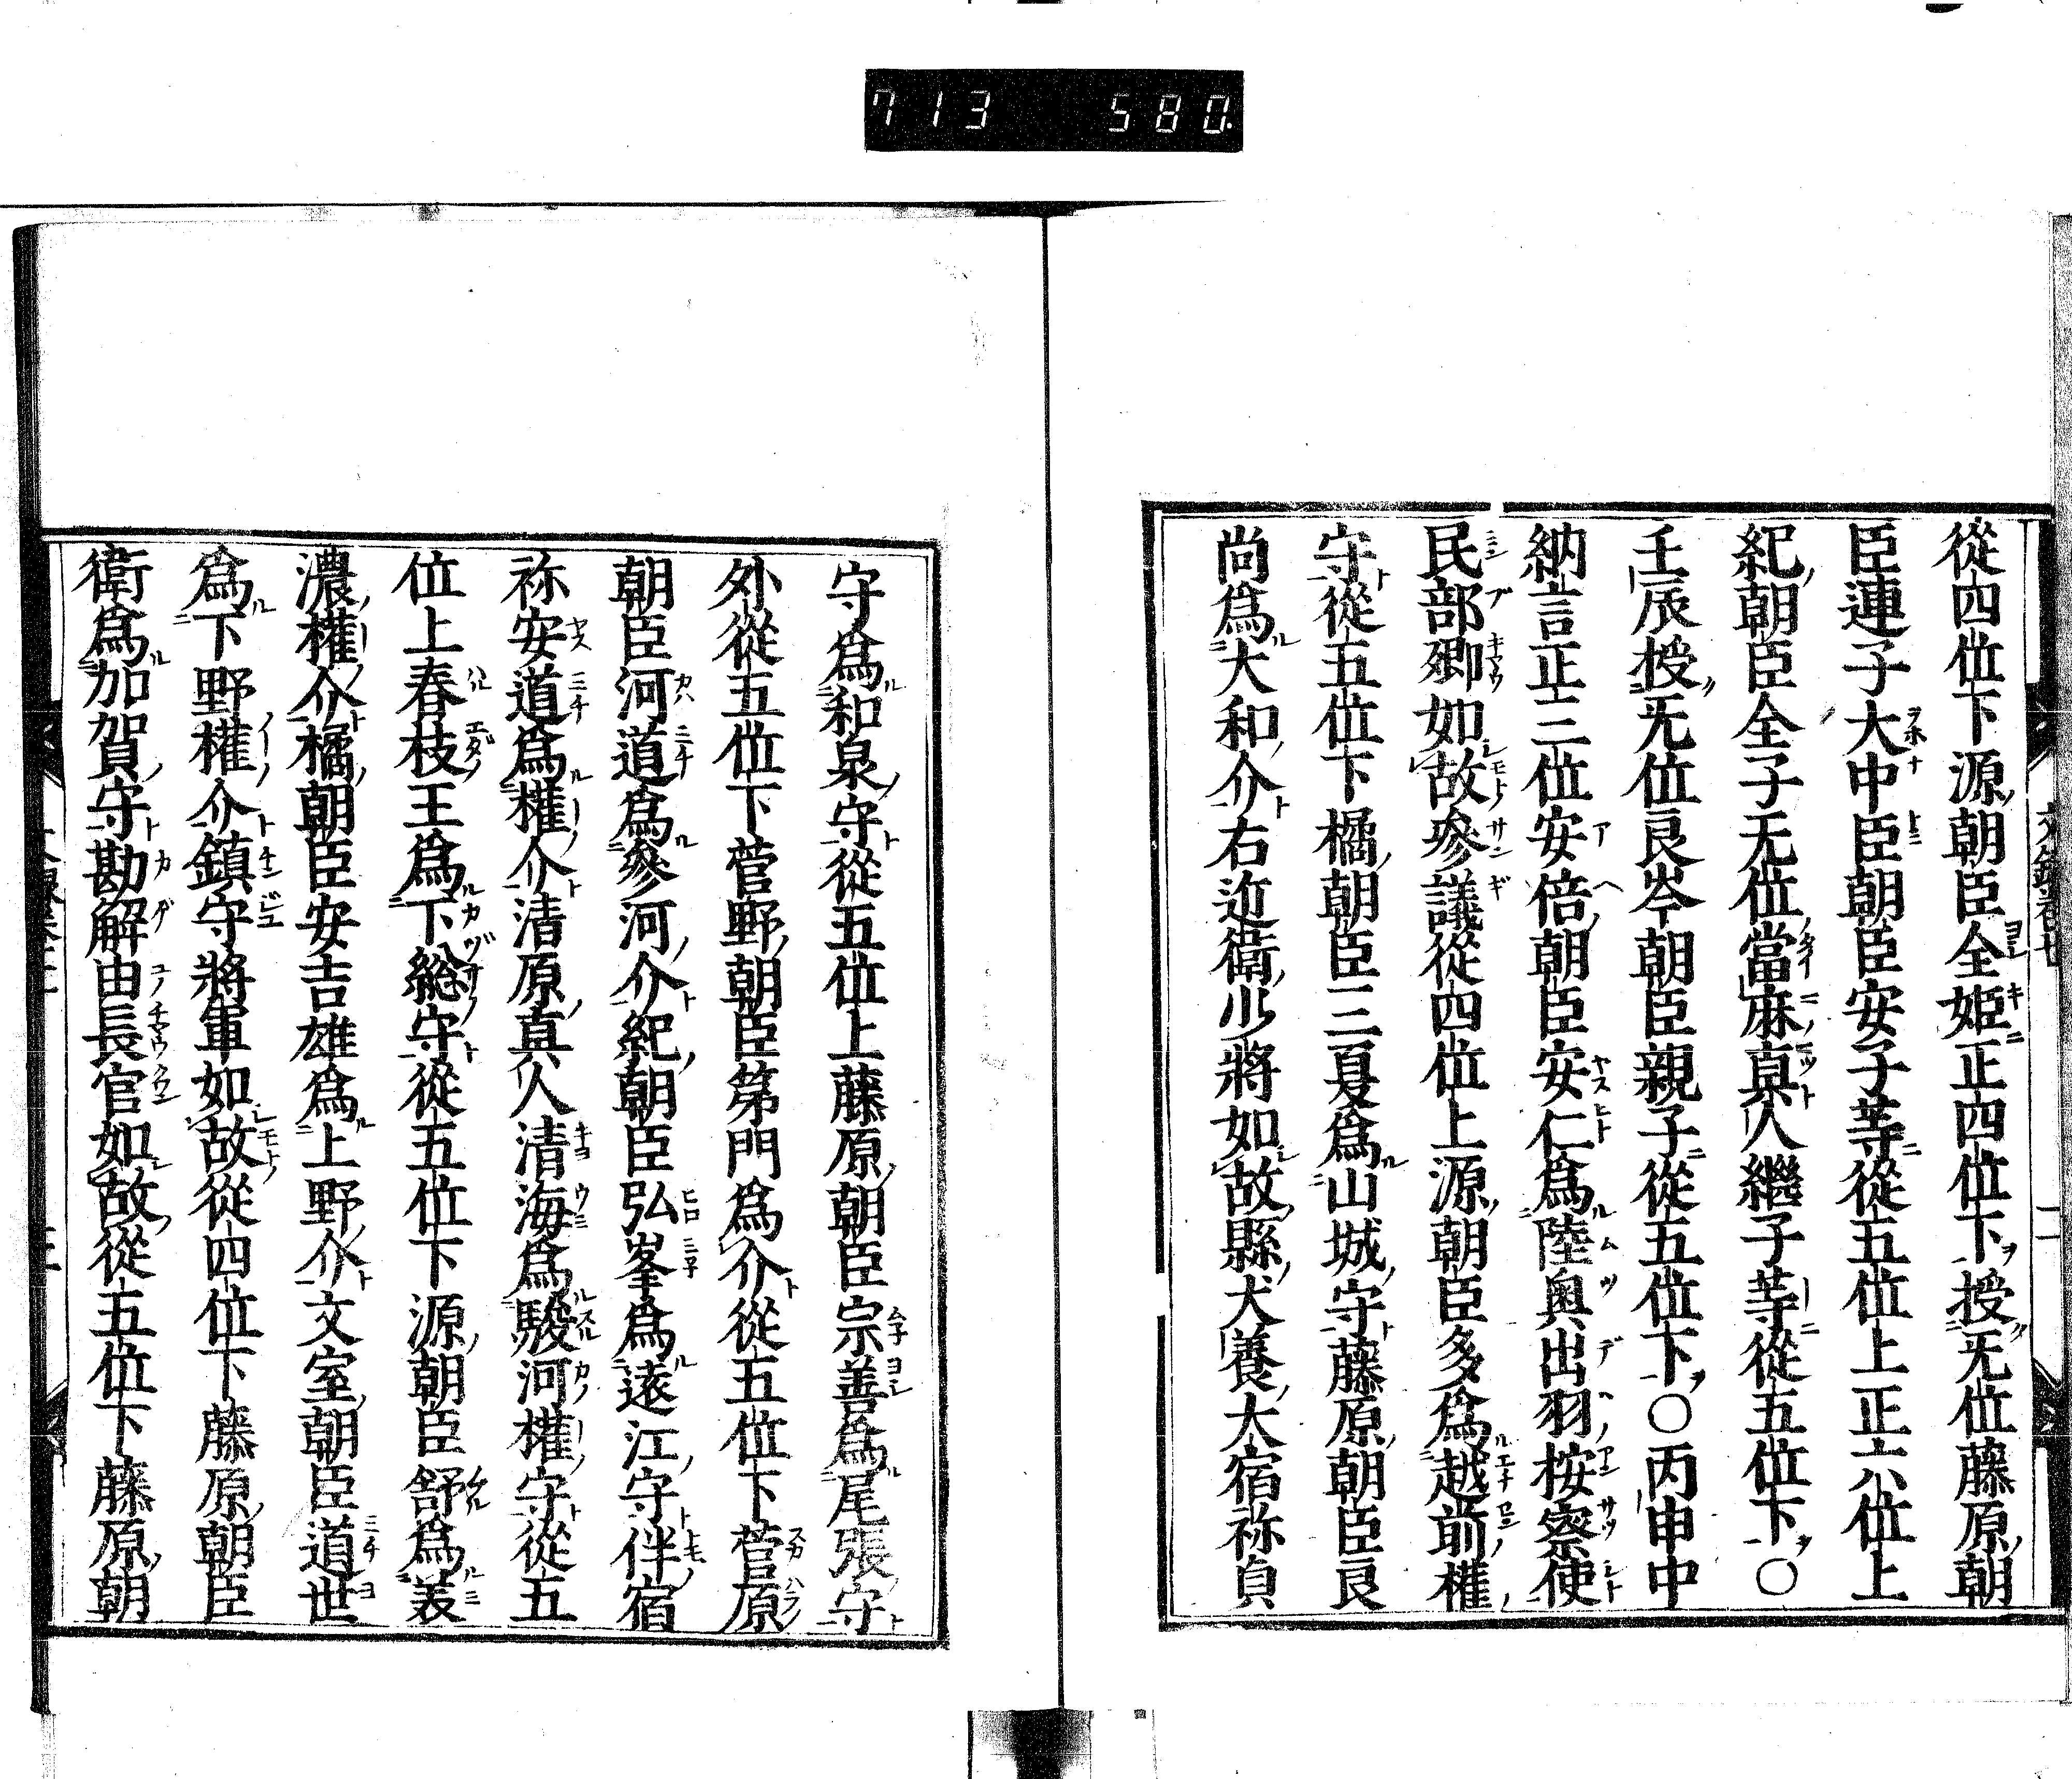 713 580
從四位下源朝臣全姫正四位下授旡位藤原朝
臣連子大中臣朝臣安子等從五位上正六位上
紀朝臣全子无位當麻真人繼子等從五位下○
壬辰授旡位良岑朝臣親子從五位下○丙申中
納言正三位安倍朝臣安仁爲陸奥出羽按察使
民部卿如故參議從四位上源朝臣多爲越前權
守從五位下橘朝臣三夏爲山城守藤原朝臣良
尚爲大和介右近衛少將如故縣犬養大宿祢貞
守爲和泉守從五位上藤原朝臣宗善爲尾張守
外從五位下菅野朝臣第門爲介從五位下菅原
朝臣河道爲參河介紀朝臣弘峯爲遠江守伴宿
祢安道爲權介清原真人清海爲駿河權守從五
位上春枝王爲下総守從五位下源朝臣舒爲美
濃權介橘朝臣安吉雄爲上野介文室朝臣道世
爲下野權介鎮守將軍如故從四位下藤原朝臣
衛爲加賀守勘解由長官如故從五位下藤原朝